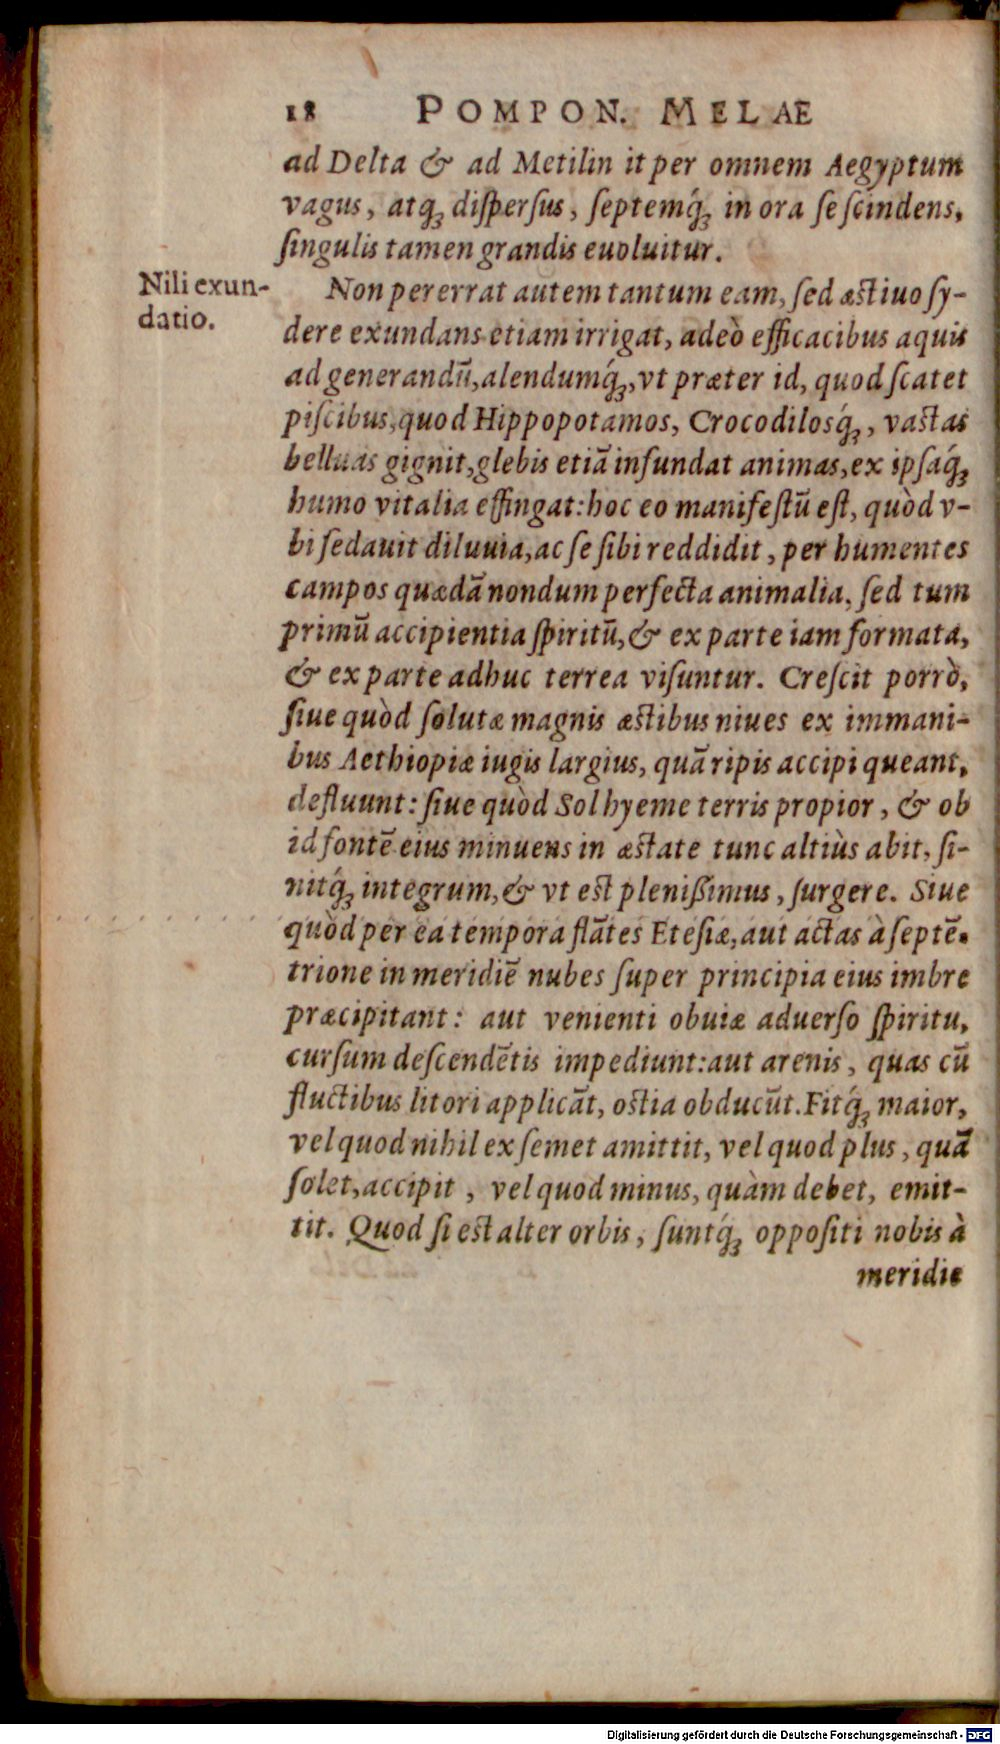 18 POMPON. MELAE
ad Delta & ad Metilin it per omnem Aegyptum
vagus, atqꝫ diſperſus, ſeptemq́ꝫ in ora ſe ſcindens,
ſingulis tamen grandis euoluitur.
Nili exun-
datio.
Non pererrat autem tantum eam, ſed æſtiuo ſy-
dere exundans etiam irrigat, adeò efficacibus aquis
ad generandū, alendumq́ꝫ, vt præter id, quod ſcatet
piſcibus, quod Hippopotamos, Crocodilosq́ꝫ, vaſtas
belluas gignit, glebis etiā infundat animas, ex ipſaq́ꝫ
humo vitalia effingat: hoc eo manifeſtū eſt, quòd v-
bi ſedauit diluuia, ac ſe ſibi reddidit, per humentes
campos quædā nondum perfecta animalia, ſed tum
primū accipientia ſpiritū, & ex parte iam formata,
& ex parte adhuc terrea viſuntur. Creſcit porrò,
ſiue quòd ſolutæ magnis æſtibus niues ex immani-
bus Aethiopiæ iugis largius, quā ripis accipi queant,
defluunt: ſiue quòd Sol hyeme terris propior, & ob
id fontē eius minuens in æſtate tunc altiùs abit, ſi-
nitq́ꝫ integrum, & vt eſt pleniſſimus, ſurgere. Siue
quòd per ea tempora flātes Eteſiæ, aut actas à ſeptē-
trione in meridiē nubes ſuper principia eius imbre
præcipitant: aut venienti obuiæ aduerſo ſpiritu,
curſum deſcendētis impediunt: aut arenis, quas cū
fluctibus litori applicāt, oſtia obducūt. Fitq́ꝫ maior,
vel quod nihil ex ſemet amittit, vel quod plus, quā
ſolet, accipit, vel quod minus, quàm debet, emit-
tit. Quod ſi eſt alter orbis, ſuntq́ꝫ oppoſiti nobis à
meridie
Digitalisierung gefördert durch die Deutsche Forschungsgemeinschaft - DFG